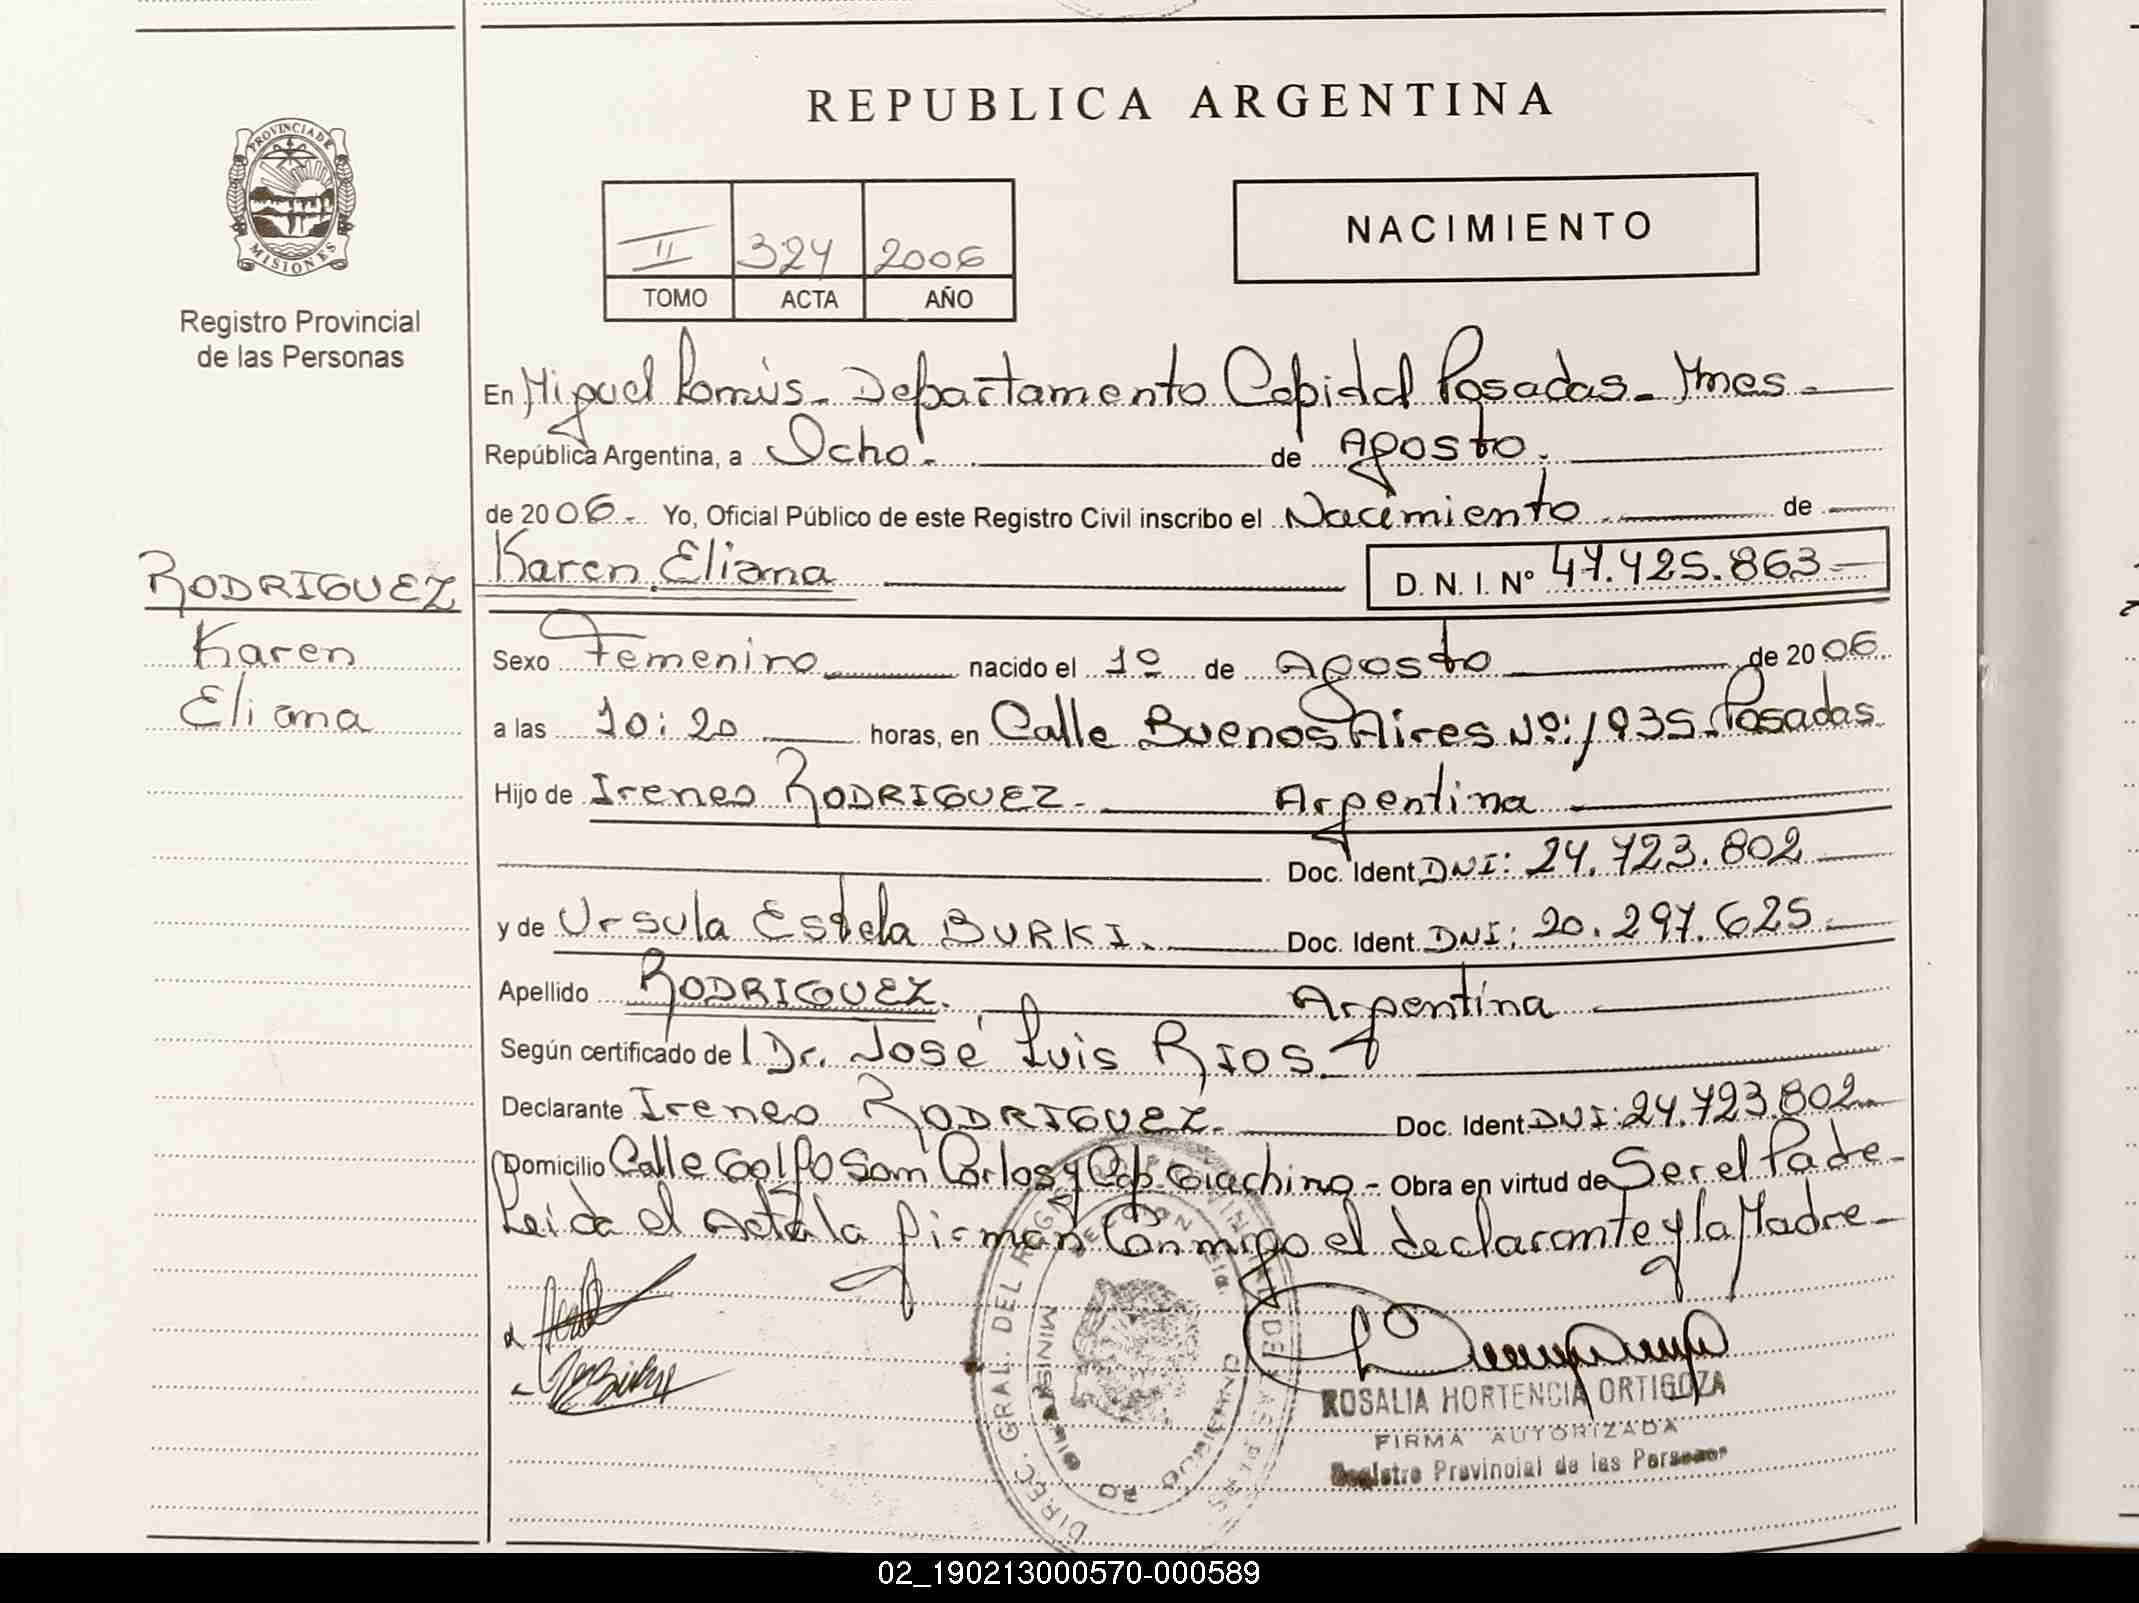 REPUBLICA ARGENTINA
PROVINCIA DE
MISIONES
Registro Provincial
de las Personas
NACIMIENTO
II 324 2006
TOMO ACTA AÑO
En Miguel Lanús - Departamento Capital Posadas - Mnes -
República Argentina, a Ocho - de Agosto -
de 2006 - Yo, Oficial Público de este Registro Civil inscribo el Nacimiento de
RODRIGUEZ
Karen
Eliana
Karen Eliana D. N. I. Nº 47.425.863
Sexo Femenino nacido el 1º de Agosto de 2006
a las 10:20 horas, en Calle Buenos Aires Nº: 1935 - Posadas
Hijo de Ireneo RODRIGUEZ - Argentina
Doc. Ident. DNI: 24.723.802
y de Ursula Estela BURKI - Doc. Ident. DNI: 20.297.625 -
Apellido RODRIGUEZ - Argentina
Según certificado de l Dr. José Luis RIOS -
Declarante Ireneo RODRIGUEZ - Doc. Ident. DNI: 24.723.802
Domicilio Calle Golfo San Carlos y Cap. Giachino - Obra en virtud de Ser el Padre -
Leida el Acta la firman Conmigo el declarante y la Madre -
DIREC. GRAL. DEL
ROSALIA HORTENCIA ORTIGOZA
FIRMA AUTORIZADA
Registro Provincial de las Personas
02_190213000570-000589